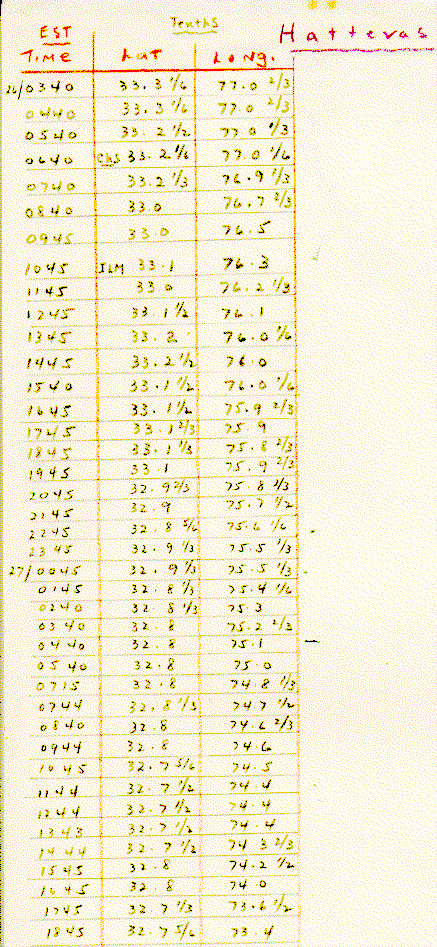 Tenths
EST Hatteras
TIME Lat Long.
26/0340 33.3 1/6 77.0 2/3
0440 33.3 1/6 77.0 2/3
0540 33.2 1/2 77.0 1/3
0640 Chs 33.2 1/6 77.0 1/6
0740 33.2 1/3 76.9 1/3
0840 33.0 76.7 2/3
0945 33.0 76.5
1045 ILM 33.1 76.3
1145 33.0 76.2 1/3
1245 33.1 1/2 76.1
1345 33.2 76.0 1/6
1445 33.2 1/2 76.0
1540 33.1 1/2 76.0 1/6
1645 33.1 1/2 75.9 2/3
1745 33.1 2/3 75.9
1845 33.1 1/3 75.8 2/3
1945 33.1 75.9 2/3
2045 32.9 2/3 75.8 2/3
2145 32.9 75.7 1/2
2245 32.8 5/6 75.6 1/6
2345 32.9 1/3 75.5 1/3
27/0045 32.9 1/3 75.5 1/3
0145 32.8 1/3 75.4 1/6
0240 32.8 1/3 75.3
0340 32.8 75.2 2/3
0440 32.8 75.1
0540 32.8 75.0
0715 32.8 74.8 1/3
0744 32.8 1/3 74.7 1/2
0840 32.8 74.6 2/3
0944 32.8 74.6
1045 32.7 5/6 74.5
1144 32.7 1/2 74.4
1244 32.7 1/2 74.4
1343 32.7 1/2 74.4
1444 32.7 1/2 74.3 2/3
1545 32.8 74.2 1/2
1645 32.8 74.0
1745 32.7 1/3 73.6 1/2
1845 32.7 5/6 73.4